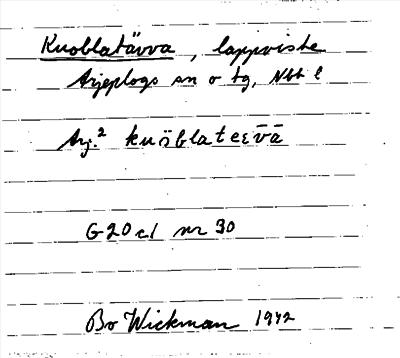 Kuoblatävva, lappviste
Arjeplogs sn o tg, Nbt l
Arj.² kuöblateɛv̄ā
G20c1 nr 30
Bo Wickman 1942